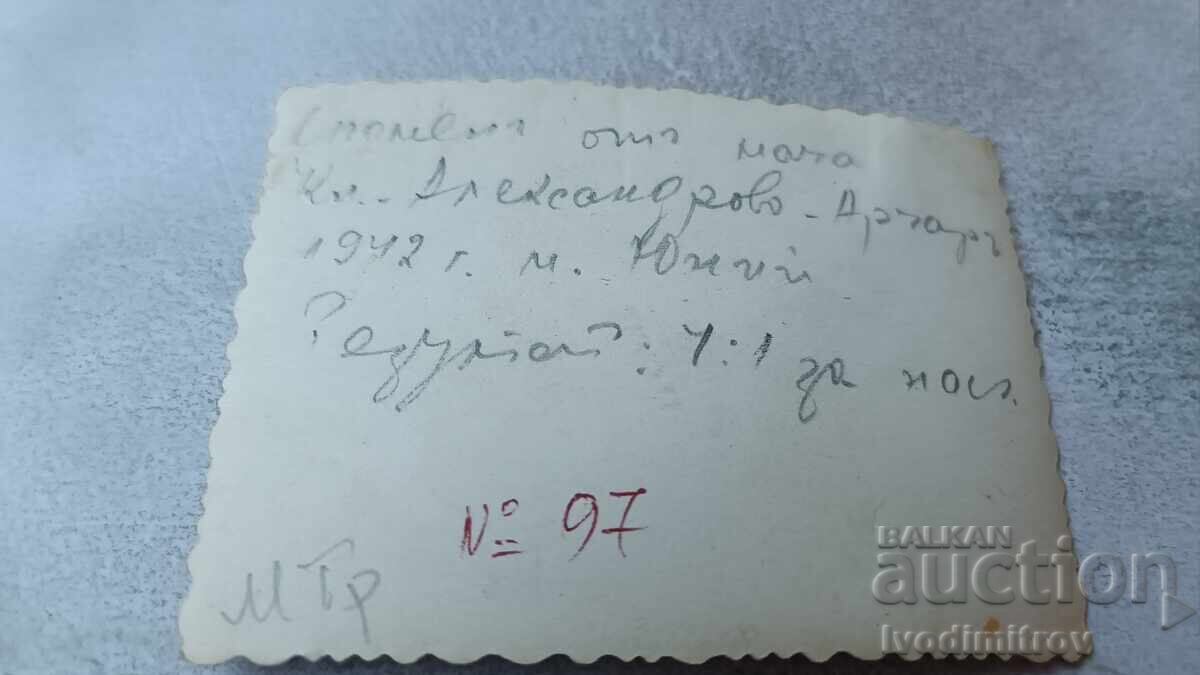 Споменъ отъ мача
Кн. Александрово - Арчаръ
1942 г. м. Юний
Резултат: 4:1 за насъ.
№ 97
МТр
BALKAN
auction
Ivodimitrov